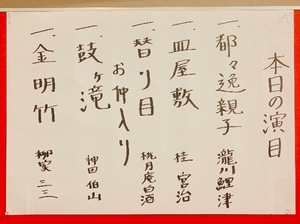 本日の演目
一、都々逸親子 瀧川鯉津
一、皿屋敷 桂宮治
一、替り目 桃月庵白酒
お仲入り
一、鼓ヶ滝 神田伯山
一、金明竹 柳家三三